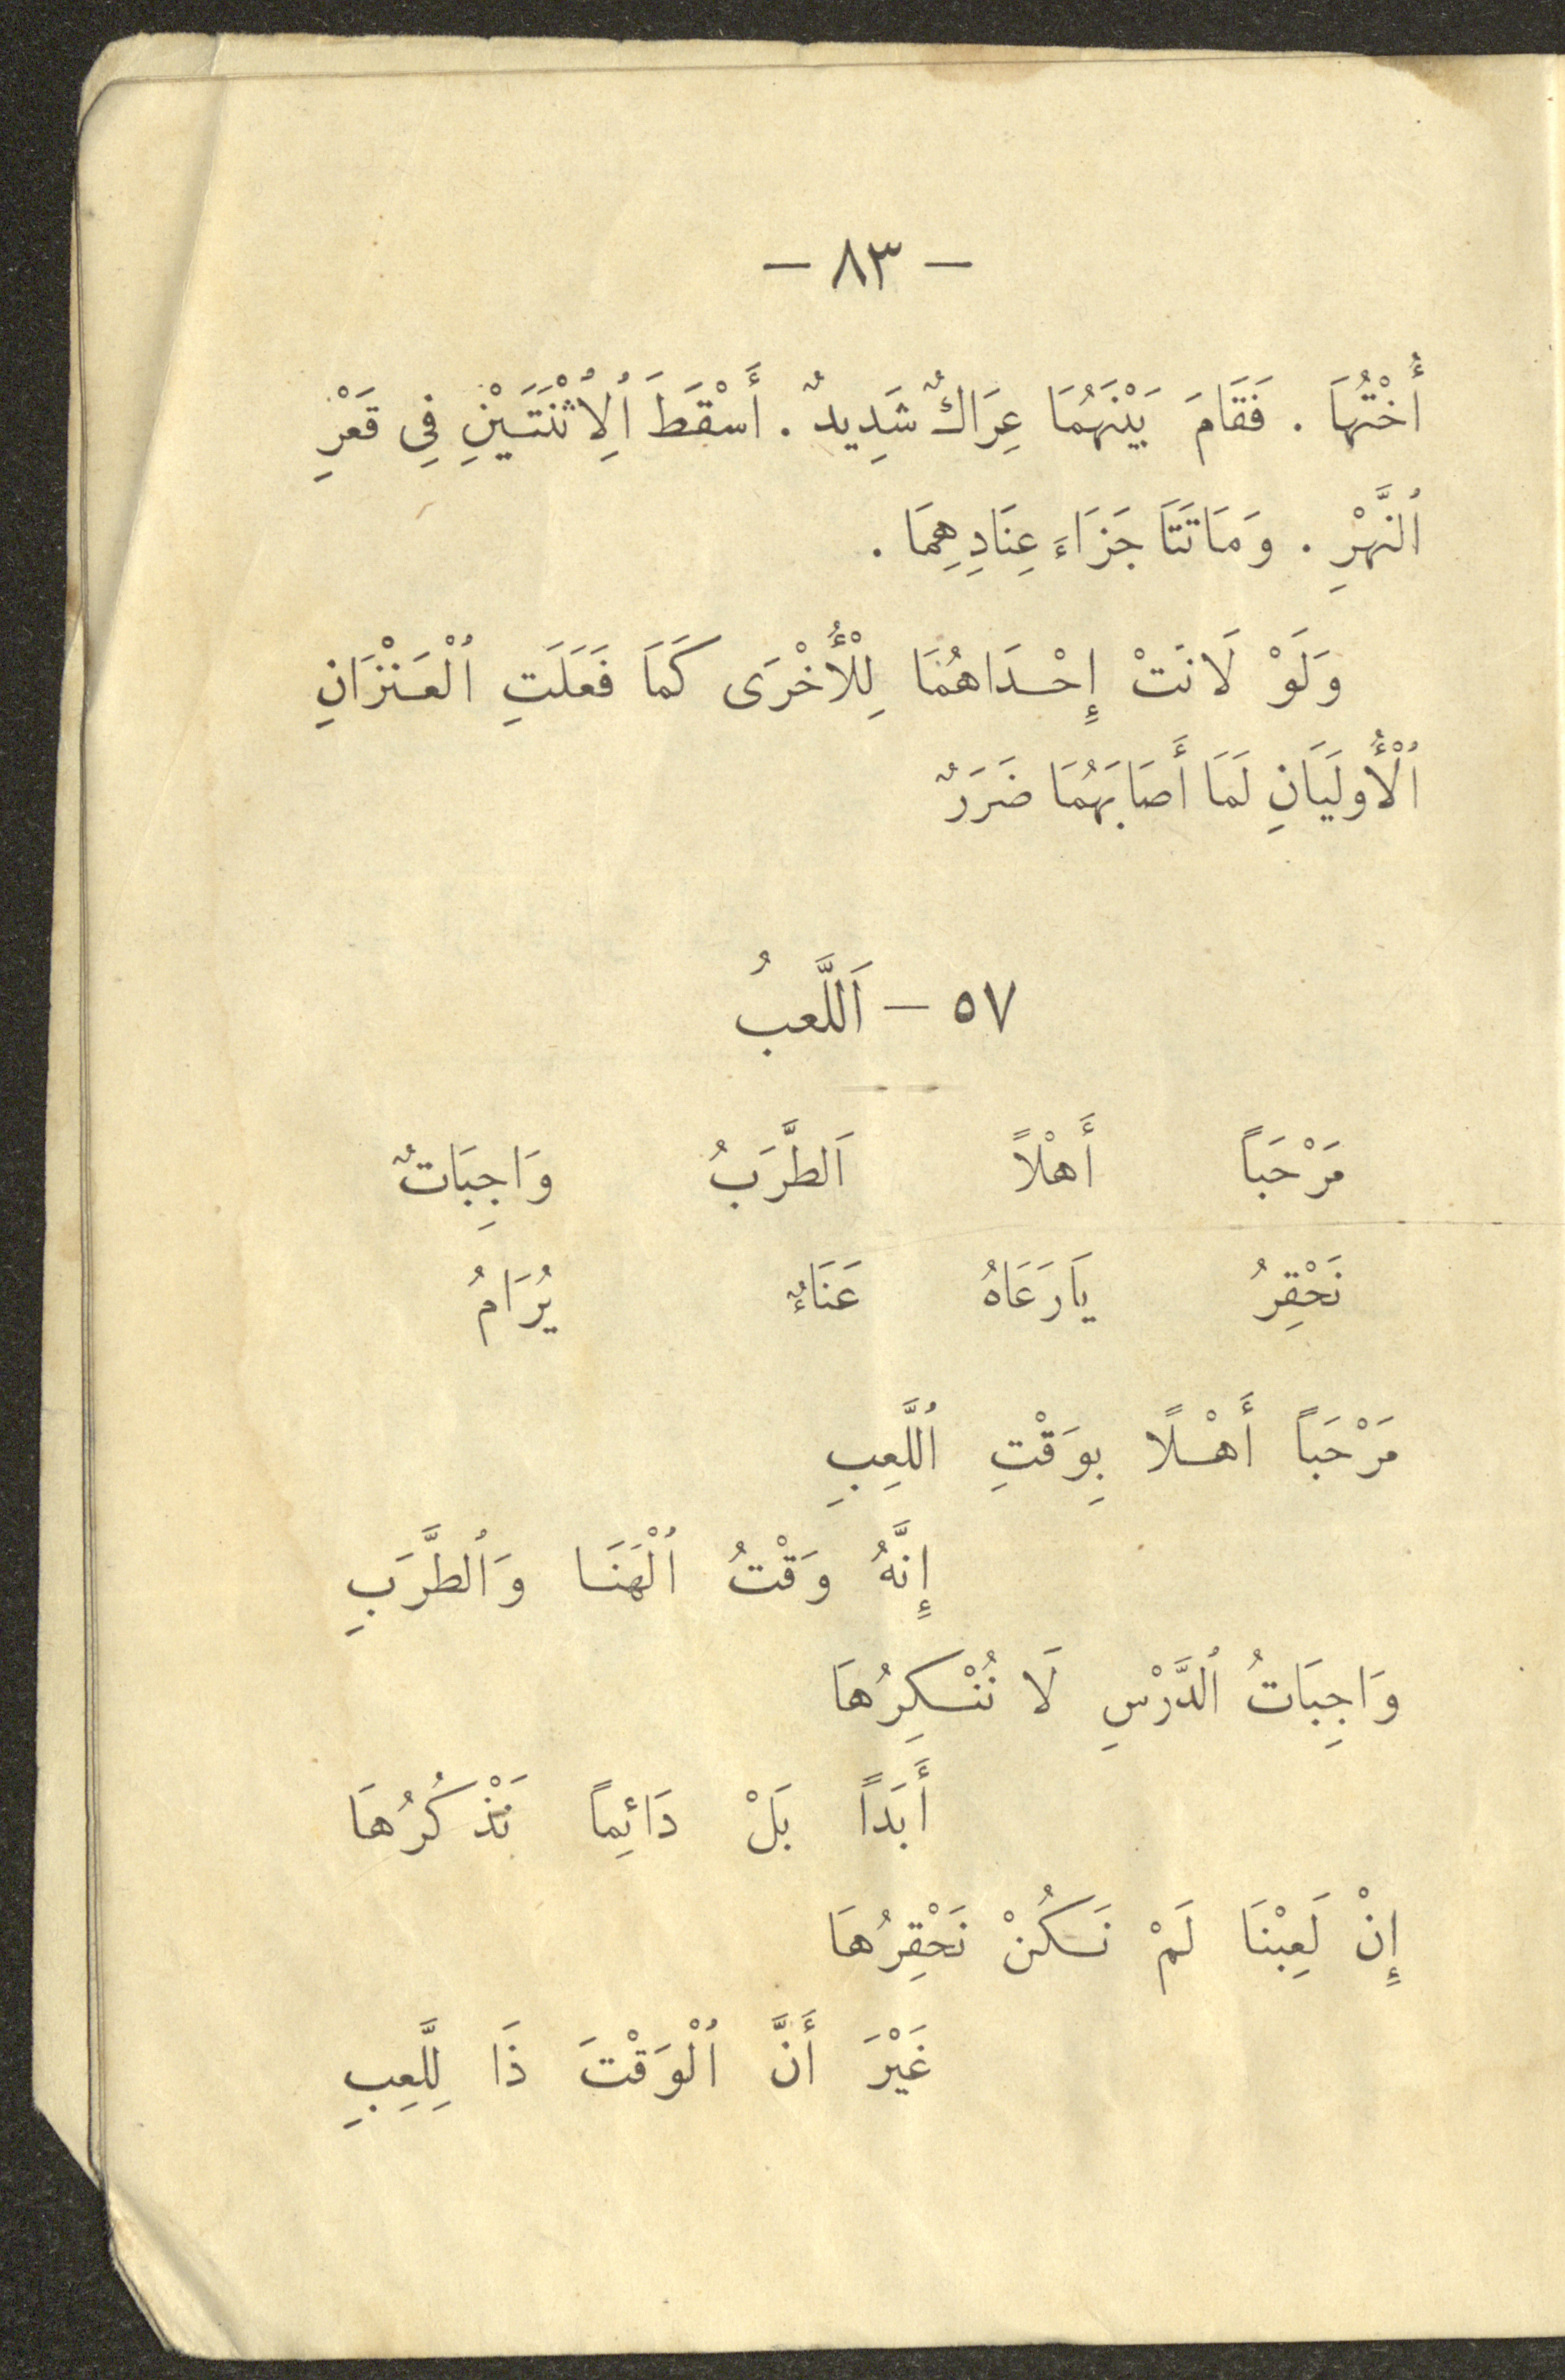 — ٨٣ —
أُخْتُهَا . فَقَامَ بَيْنَهُمَا عِرَاكٌ شَدِيدٌ . أَسْقَطَ ٱلِٱثْنَتَيْنِ فِي قَعْرِ
ٱلنَّهْرِ . وَمَاتَتَا جَزَاءَ عِنَادِهِمَا .
وَلَوْ لَانَتْ إِحْدَاهُمَا لِلْأُخْرَى كَمَا فَعَلَتِ ٱلْعَنْزَانِ
ٱلْأُولَيَانِ لَمَا أَصَابَهُمَا ضَرَرٌ
٥٧ — اَللَّعبُ
مَرْحَباً أَهْلاً اَلطَّرَبُ وَاجِبَاتٌ
نَحْقِرُ يَارَعَاهُ عَنَاءٌ يُرَامُ
مَرْحَباً أَهْلًا بِوَقْتِ ٱللَّعِبِ
إِنَّهُ وَقْتُ ٱلْهَنَا وَٱلطَّرَبِ
وَاجِبَاتُ ٱلدَّرْسِ لَا نُنْكِرُهَا
أَبَداً بَلْ دَائِماً نَذْكُرُهَا
إِنْ لَعِبْنَا لَمْ نَكُنْ نَحْقِرُهَا
غَيْرَ أَنَّ ٱلْوَقْتَ ذَا لِلَّعِبِ